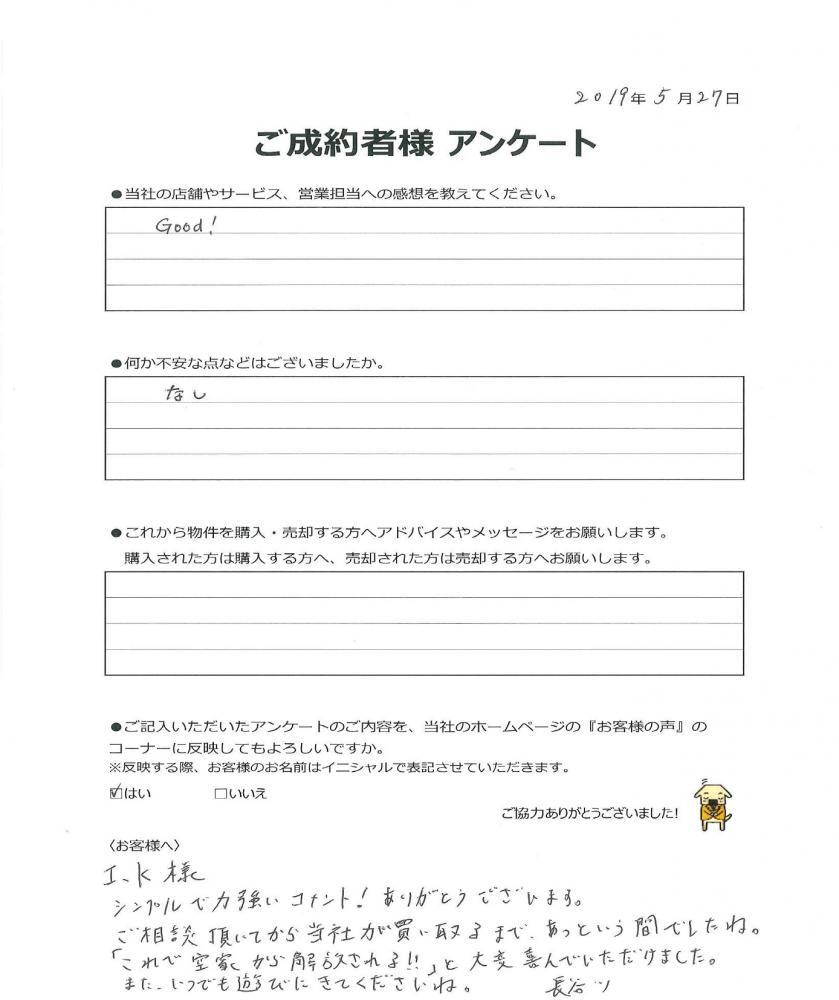 2019年 5月27日
ご成約者様 アンケート
●当社の店舗やサービス、営業担当への感想を教えてください。
Good!
●何か不安な点などはございましたか。
なし
●これから物件を購入・売却する方へアドバイスやメッセージをお願いします。
購入された方は購入する方へ、売却された方は売却する方へお願いします。
●ご記入いただいたアンケートのご内容を、当社のホームページの『お客様の声』の
コーナーに反映してもよろしいですか。
※反映する際、お客様のお名前はイニシャルで表記させていただきます。
☑はい □いいえ
ご協力ありがとうございました!
〈お客様へ〉
I.K 様
シンプルで力強いコメント!ありがとうございます。
ご相談頂いてから当社が買い取るまで、あっという間でしたね。
「これで空家から解放される!!」と大変喜んでいただけました。
また、いつでも遊びにきてくださいね。 長谷川